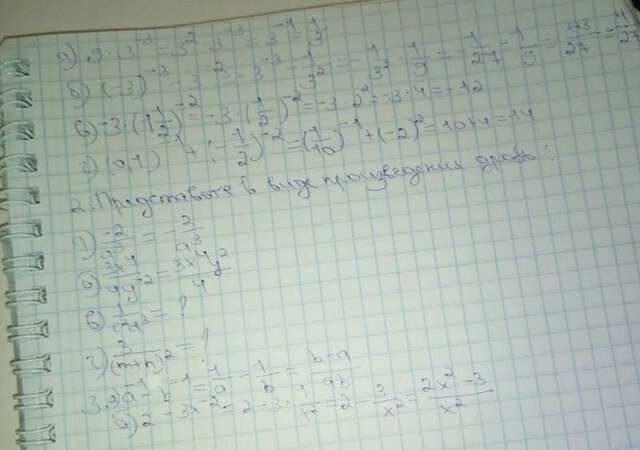 а) 9·3⁻³ = 3²·3⁻³ = 3⁻¹ = 1/3
б) (-3)⁻³ - 3⁻² = -3⁻³ - 1/3² = - 1/3³ - 1/9 = - 1/27 - 1/9 =
в) -3·(1/2)⁻² = -3·(1/2)⁻² = -3·2² = -3·4 = -12
г) (0,1)⁻¹ + (-1/2)⁻² = (1/10)⁻¹ + (-2)² = 10+4 = 14
2. Представьте в виде произведения дробь:
2/a³
б) 3x⁴/ = 3x⁴y²
в) 1/ = ?
г) 3/(m+n)² = ?
3. a) a⁻¹ - b⁻¹ = 1/a - 1/b = b-a/ab
б) 2 - 3x⁻² = 2-3· 1/x² = 2 - 3/x² = 2x²-3/x²